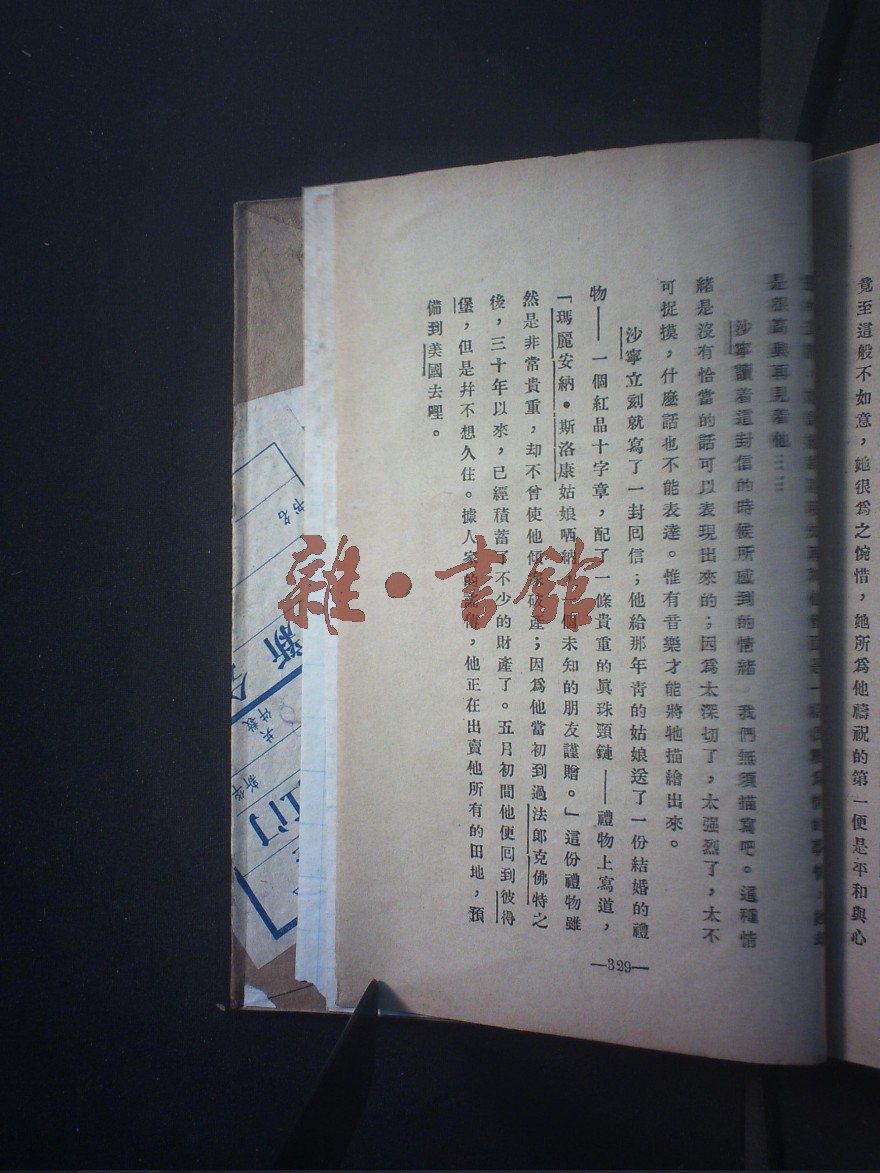 竟至這般不如意，她很爲之惋惜，她所爲他禱祝的第一便是平和與心
是很高興再見着他……
沙寧讀着這封信的時候所感到的情緒 我們無須描寫吧。這種情
緒是沒有恰當的話可以表現出來的；因爲太深切了，太强烈了，太不
可捉摸，什麼話也不能表達。惟有音樂才能將牠描繪出來。
沙寧立刻就寫了一封囘信；他給那年靑的姑娘送了一份結婚的禮
物——一個紅晶十字章，配了一條貴重的眞珠頸鏈——禮物上寫道，
「瑪麗安納•斯洛康姑娘哂納 一個未知的朋友謹贈。」這份禮物雖
然是非常貴重，却不曾使他傾家破產；因爲他當初到過法郎克佛特之
後，三十年以來，已經積蓄了不少的財產了。五月初間他便囘到彼得
堡，但是幷不想久住。據人家的 傳，他正在出賣他所有的田地，預
備到美國去哩。
—329—
雜•書館
书名
新
共
件数
新华